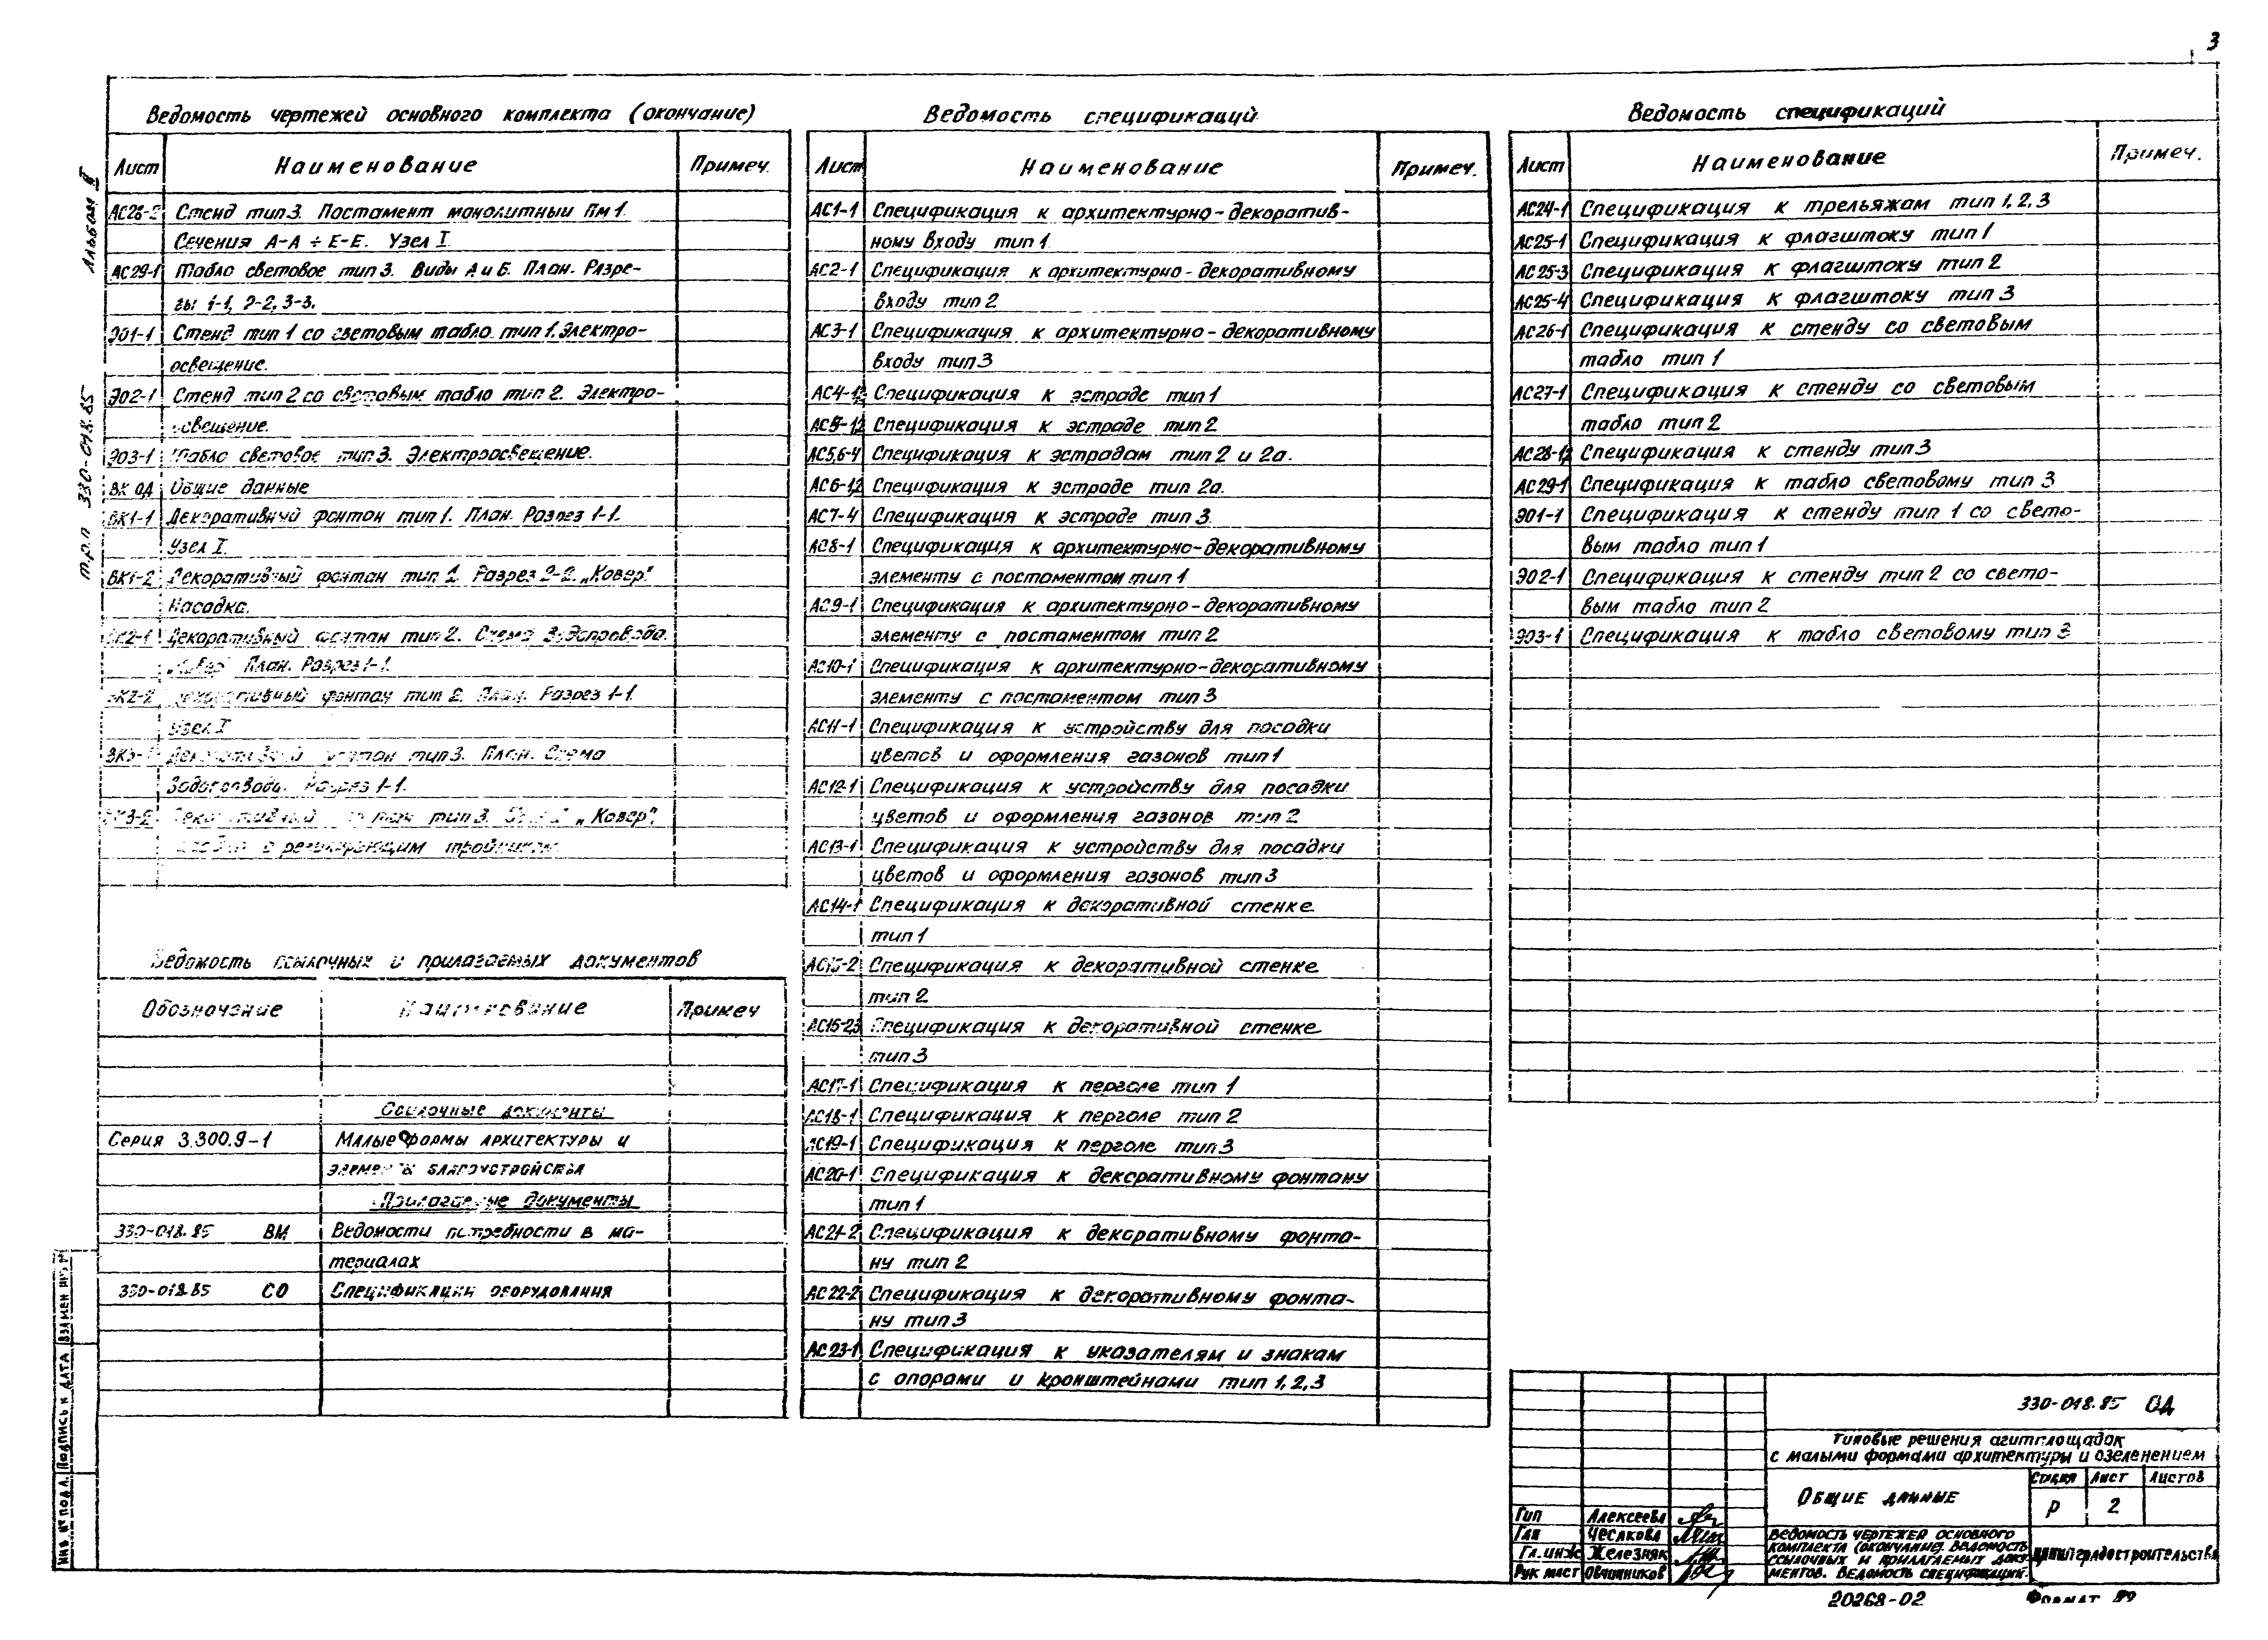 3
Альбом II
т.р.п 330-018.85
Ведомость чертежей основного комплекта (окончание)
Лист Наименование Примеч.
АС28-2 Стенд тип 3. Постамент монолитный Пм1.
Сечения А-А ÷ Е-Е. Узел I
АС29-1 Табло световое тип 3. Виды А и Б. План. Разре-
зы 1-1, 2-2, 3-3.
ЭО1-1 Стенд тип 1 со световым табло тип 1. Электро-
освещение.
ЭО2-1 Стенд тип 2 со световым табло тип 2. Электро-
освещение.
ЭО3-1 Табло световое тип 3. Электроосвещение.
ВК ОД Общие данные
ВК1-1 Декоративный фонтан тип 1. План. Разрез 1-1.
Узел I.
ВК1-2 Декоративный фонтан тип 1. Разрез 2-2. „Ковер"
Насадка.
ВК2-1 Декоративный фонтан тип 2. Схема водопровода.
„Ковер" План. Разрез 1-1.
ВК2-2 Декоративный фонтан тип 2. План. Разрез 1-1.
Узел I
ВК3-1 Декоративный фонтан тип 3. План. Схема
водопровода. Разрез 1-1.
ВК3-2 Декоративный фонтан тип 3. „Ковер",
с регулирующим тройником
Ведомость ссылочных и прилагаемых документов
Обозначение Наименование Примеч
Ссылочные документы
Серия 3.300.9-1 Малые формы архитектуры и
элементы благоустройства
Прилагаемые документы
330-018.85 ВМ Ведомости потребности в ма-
териалах
330-018.85 СО Спецификации оборудования
Ведомость спецификаций
Лист Наименование Примеч.
АС1-1 Спецификация к архитектурно-декоратив-
ному входу тип 1
АС2-1 Спецификация к архитектурно-декоративному
входу тип 2
АС3-1 Спецификация к архитектурно-декоративному
входу тип 3
АС4-1,2 Спецификация к эстраде тип 1
АС5-1,2 Спецификация к эстраде тип 2
АС5,6-4 Спецификация к эстрадам тип 2 и 2а.
АС6-1,2 Спецификация к эстраде тип 2а.
АС7-4 Спецификация к эстраде тип 3
АС8-1 Спецификация к архитектурно-декоративному
элементу с постаментом тип 1
АС9-1 Спецификация к архитектурно-декоративному
элементу с постаментом тип 2
АС10-1 Спецификация к архитектурно-декоративному
элементу с постаментом тип 3
АС11-1 Спецификация к устройству для посадки
цветов и оформления газонов тип 1
АС12-1 Спецификация к устройству для посадки
цветов и оформления газонов тип 2
АС13-1 Спецификация к устройству для посадки
цветов и оформления газонов тип 3
АС14-1 Спецификация к декоративной стенке
тип 1
АС15-2 Спецификация к декоративной стенке
тип 2
АС16-2,3 Спецификация к декоративной стенке
тип 3
АС17-1 Спецификация к перголе тип 1
АС18-1 Спецификация к перголе тип 2
АС19-1 Спецификация к перголе тип 3
АС20-1 Спецификация к декоративному фонтану
тип 1
АС21-2 Спецификация к декоративному фонта-
ну тип 2
АС22-2 Спецификация к декоративному фонта-
ну тип 3
АС23-1 Спецификация к указателям и знакам
с опорами и кронштейнами тип 1,2,3
Ведомость спецификаций
Лист Наименование Примеч.
АС24-1 Спецификация к трельяжам тип 1,2,3
АС25-1 Спецификация к флагштоку тип 1
АС25-3 Спецификация к флагштоку тип 2
АС25-4 Спецификация к флагштоку тип 3
АС26-1 Спецификация к стенду со световым
табло тип 1
АС27-1 Спецификация к стенду со световым
табло тип 2
АС28-1,2 Спецификация к стенду тип 3
АС29-1 Спецификация к табло световому тип 3
ЭО1-1 Спецификация к стенду тип 1 со свето-
вым табло тип 1
ЭО2-1 Спецификация к стенду тип 2 со свето-
вым табло тип 2
ЭО3-1 Спецификация к табло световому тип 3
330-018.85 ОД
Типовые решения агитплощадок
с малыми формами архитектуры и озеленением
Общие данные
Стадия Лист Листов
Р 2
Гип Алексеева
Гап Чесакова
Гл.инж Железняк
Рук маст Овчинников
Ведомость чертежей основного
комплекта (окончание). Ведомость
ссылочных и прилагаемых доку-
ментов. Ведомость спецификаций.
ЦНИИПградостроительства
20268-02 Формат
Инв. № подл. Подпись и дата Взамен инв. №